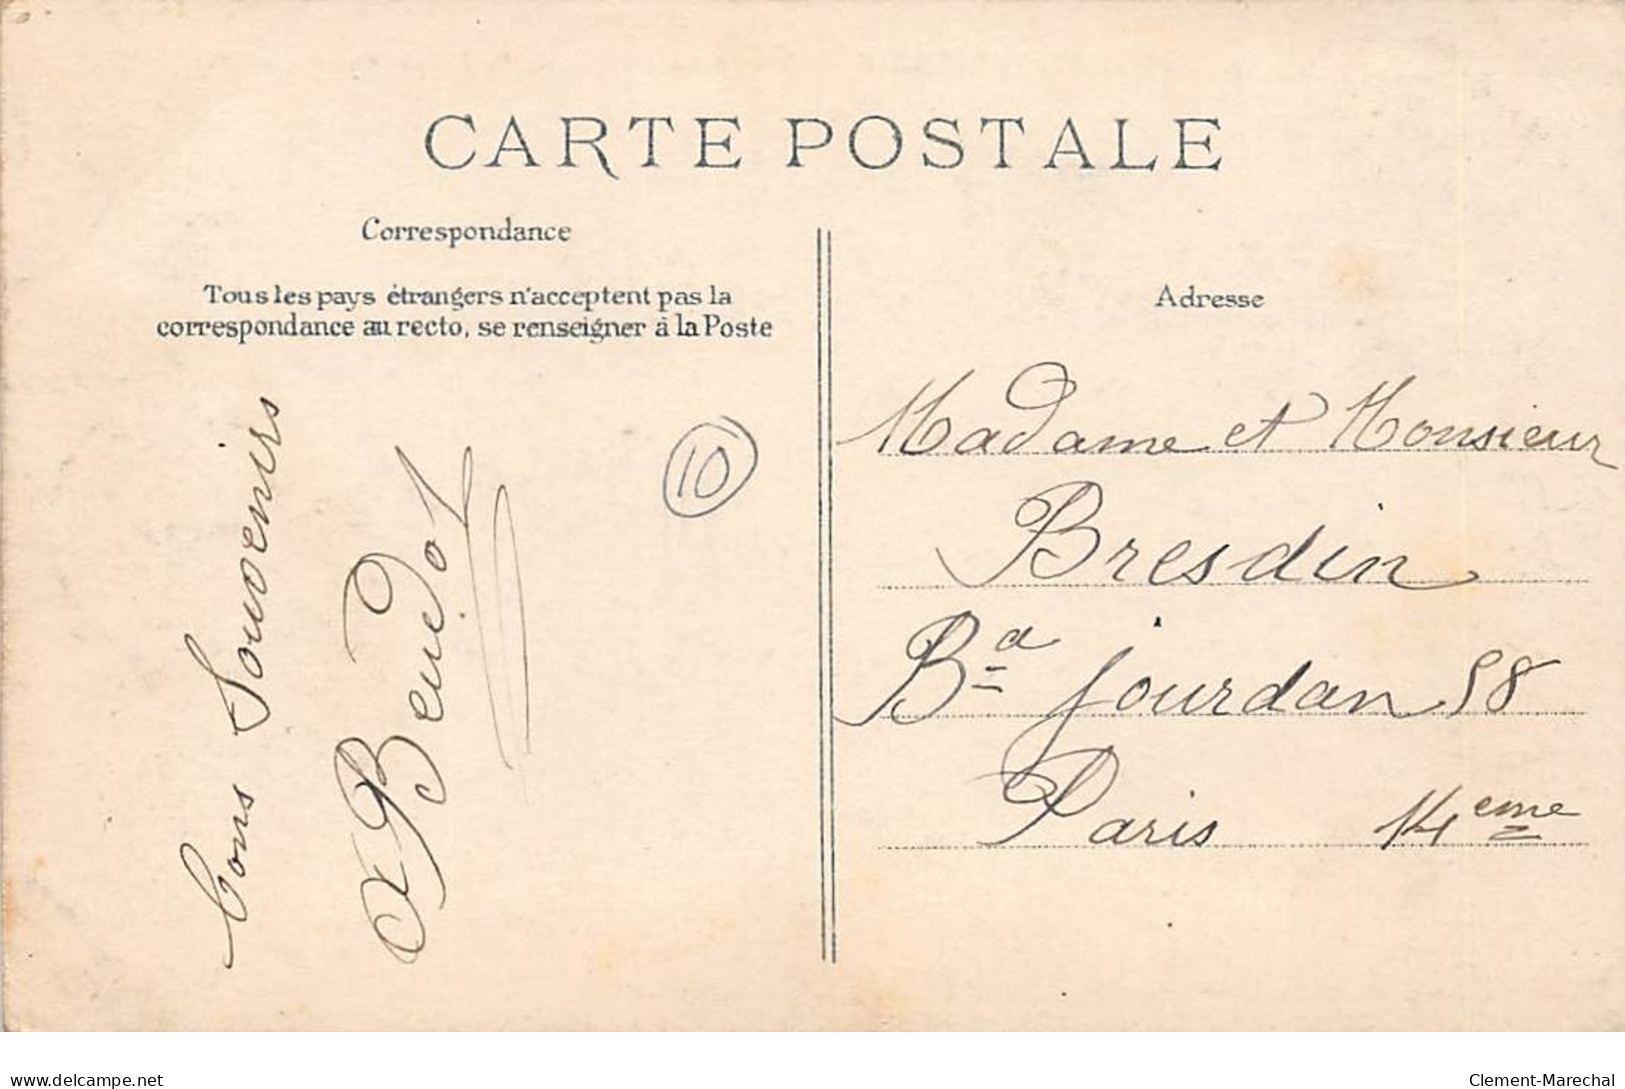 CARTE POSTALE
Correspondance
Tous les pays étrangers n'acceptent pas la
correspondance au recto, se renseigner à la Poste
Bons Souvenirs
10
Adresse
Madame et Monsieur
Bresdin
Bd Jourdan 58
Paris 14eme
delcampe.net
Clement-Marechal